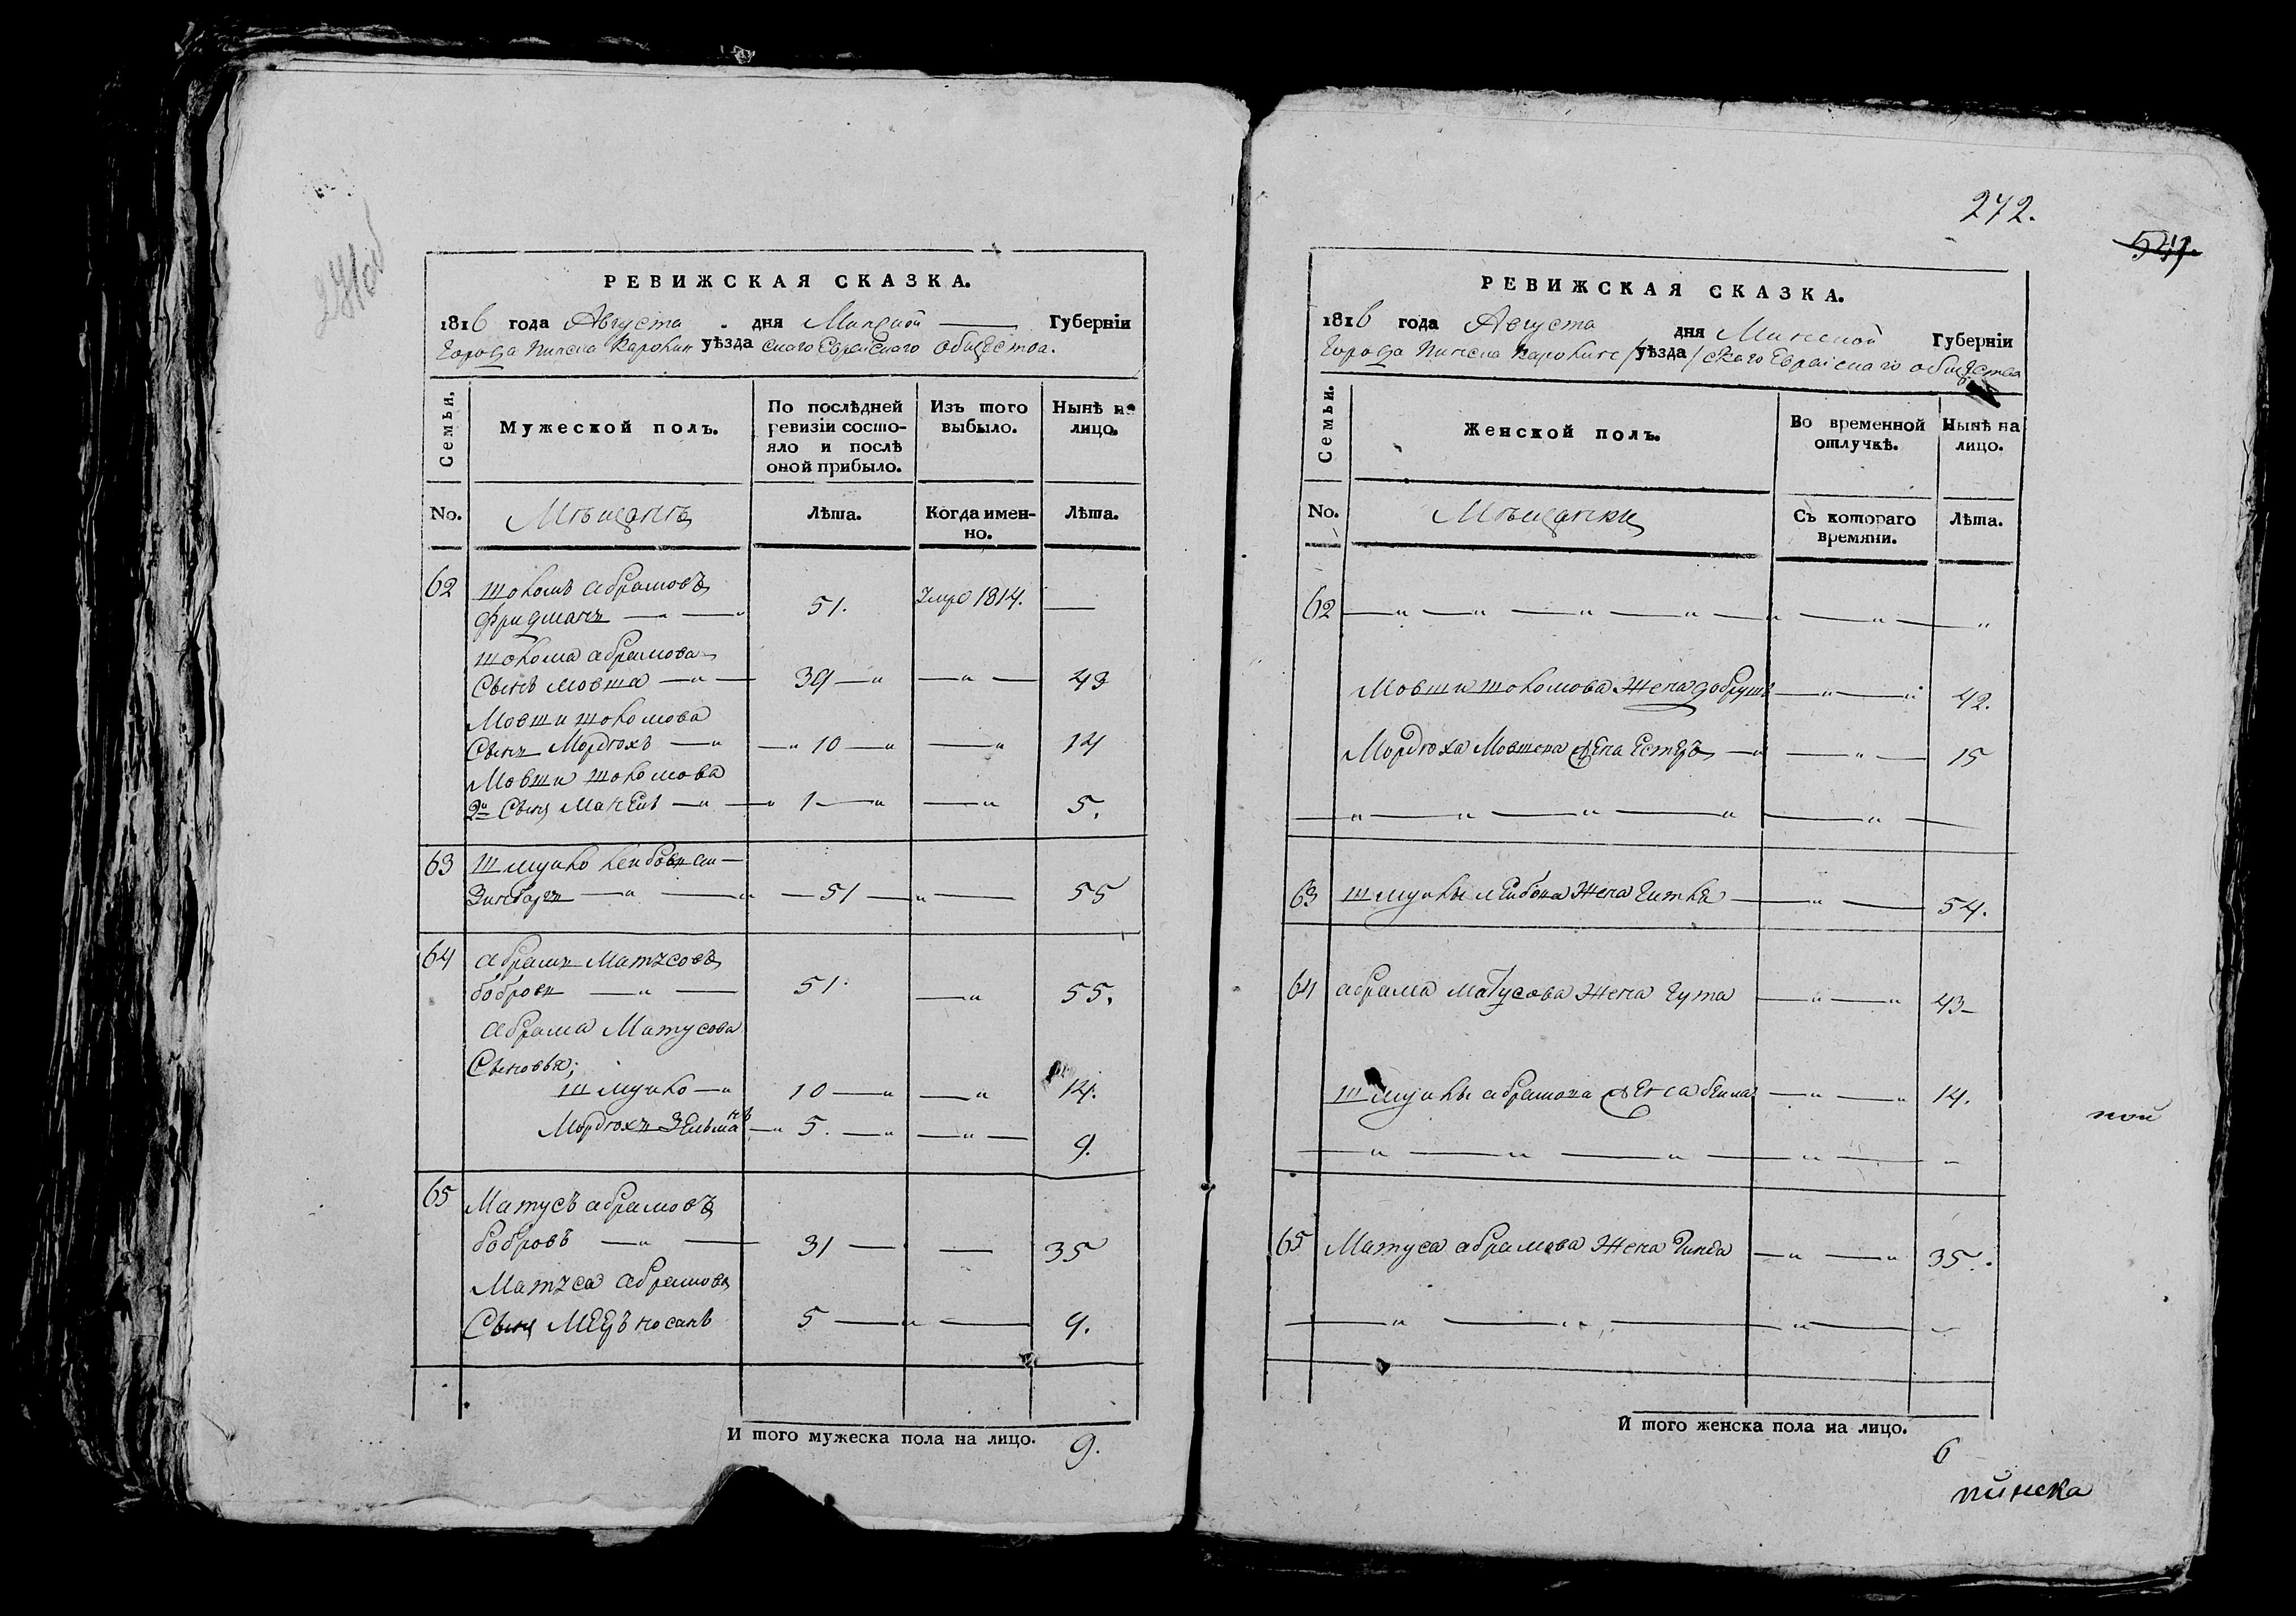 РЕВИЖСКАЯ СКАЗКА.
1816 года Августа дня Минской Губерніи
Города Пинска Каролин уѣзда скаго Еврейскаго общества.
Семьи.
Мужеской полъ.
По послѣдней ревизіи состо-
яло и послѣ
оной прибыло.
Изъ того
выбыло.
Нынѣ на
лицо.
No.
Мѣщанѣ
Лѣта.
Когда имен-
но.
Лѣта.
62
Шоломъ абрамовъ
Фридманъ 51. Умре 1814.
Шолома абрамова
Сынъ мовша 39 43
Мовши шоломова
Сынъ Мордюхъ 10 14
Мовши шоломова
2й Сынъ 1 5.
63
Шмуйло
51 55
64
абрамъ Матусовъ
бобровъ 51. 55.
абрама Матусова
Сыновья;
шмуйло 10 14.
Мордюхъ Зельманъ 5. 9.
65
Матусъ абрамовъ
бобровъ 31 35
Матуса абрамова
Сынъ носанъ 5 9.
И того мужеска пола на лицо. 9.
272.
РЕВИЖСКАЯ СКАЗКА.
1816 года Августа дня Минской Губерніи
Города Пинска Каролинс /уѣзда/ скаго Еврейскаго общества
Семьи.
Женской полъ.
Во временной
отлучкѣ.
Нынѣ на
лицо.
No.
Мѣщанки
Съ котораго
времяни.
Лѣта.
62
Мовши шоломова Жена добруша 42.
Мордюха Мовшева Жена Естеръ 15
63 шмуйлы лейбова Жена Гитля 54.
64 абрама матусова Жена Гута 43
шмуйлы абрамова Жена бейла 14.
пой
65 Матуса абрамова Жена Гинда 35.
И того женска пола на лицо.
6
пинска